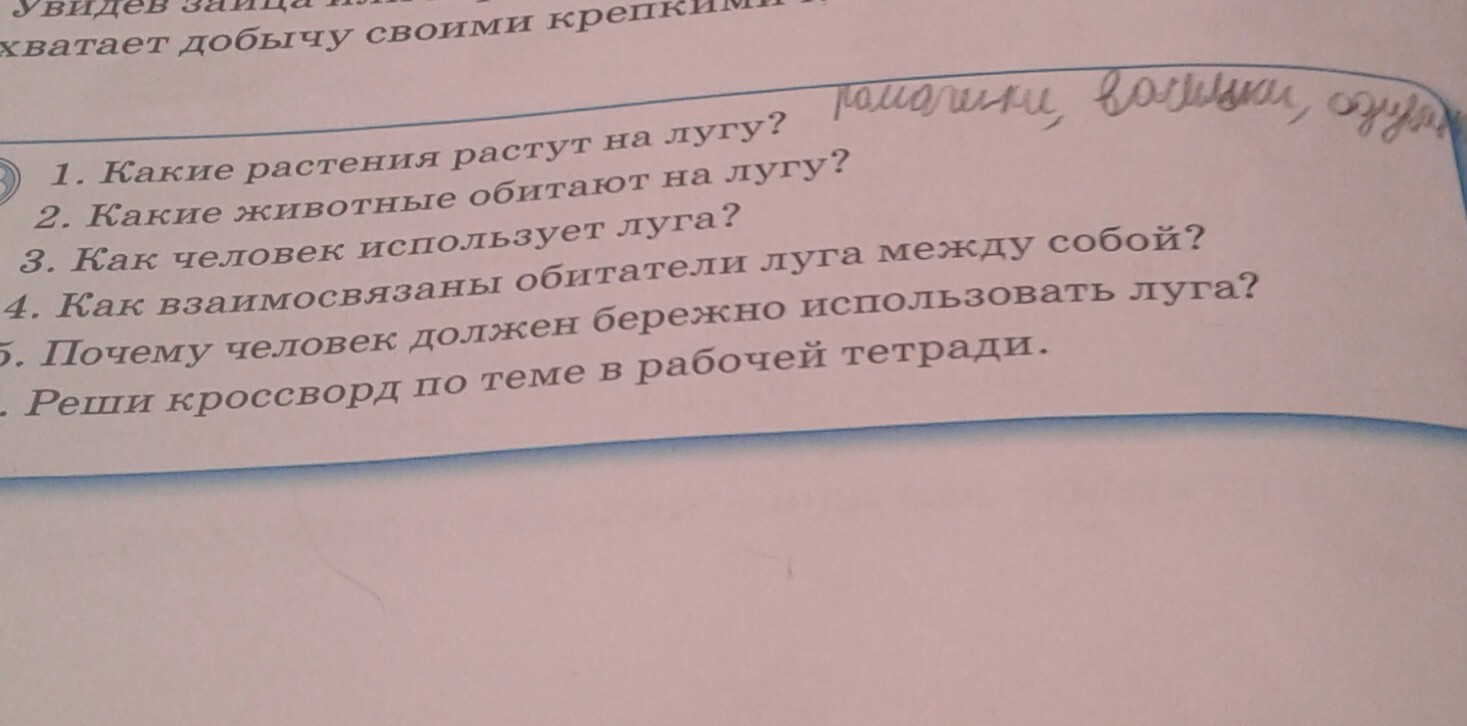 Увидев зайца
хватает добычу своими крепкими
1. Какие растения растут на лугу? ромашки, васильки,
2. Какие животные обитают на лугу?
3. Как человек использует луга?
4. Как взаимосвязаны обитатели луга между собой?
5. Почему человек должен бережно использовать луга?
. Реши кроссворд по теме в рабочей тетради.